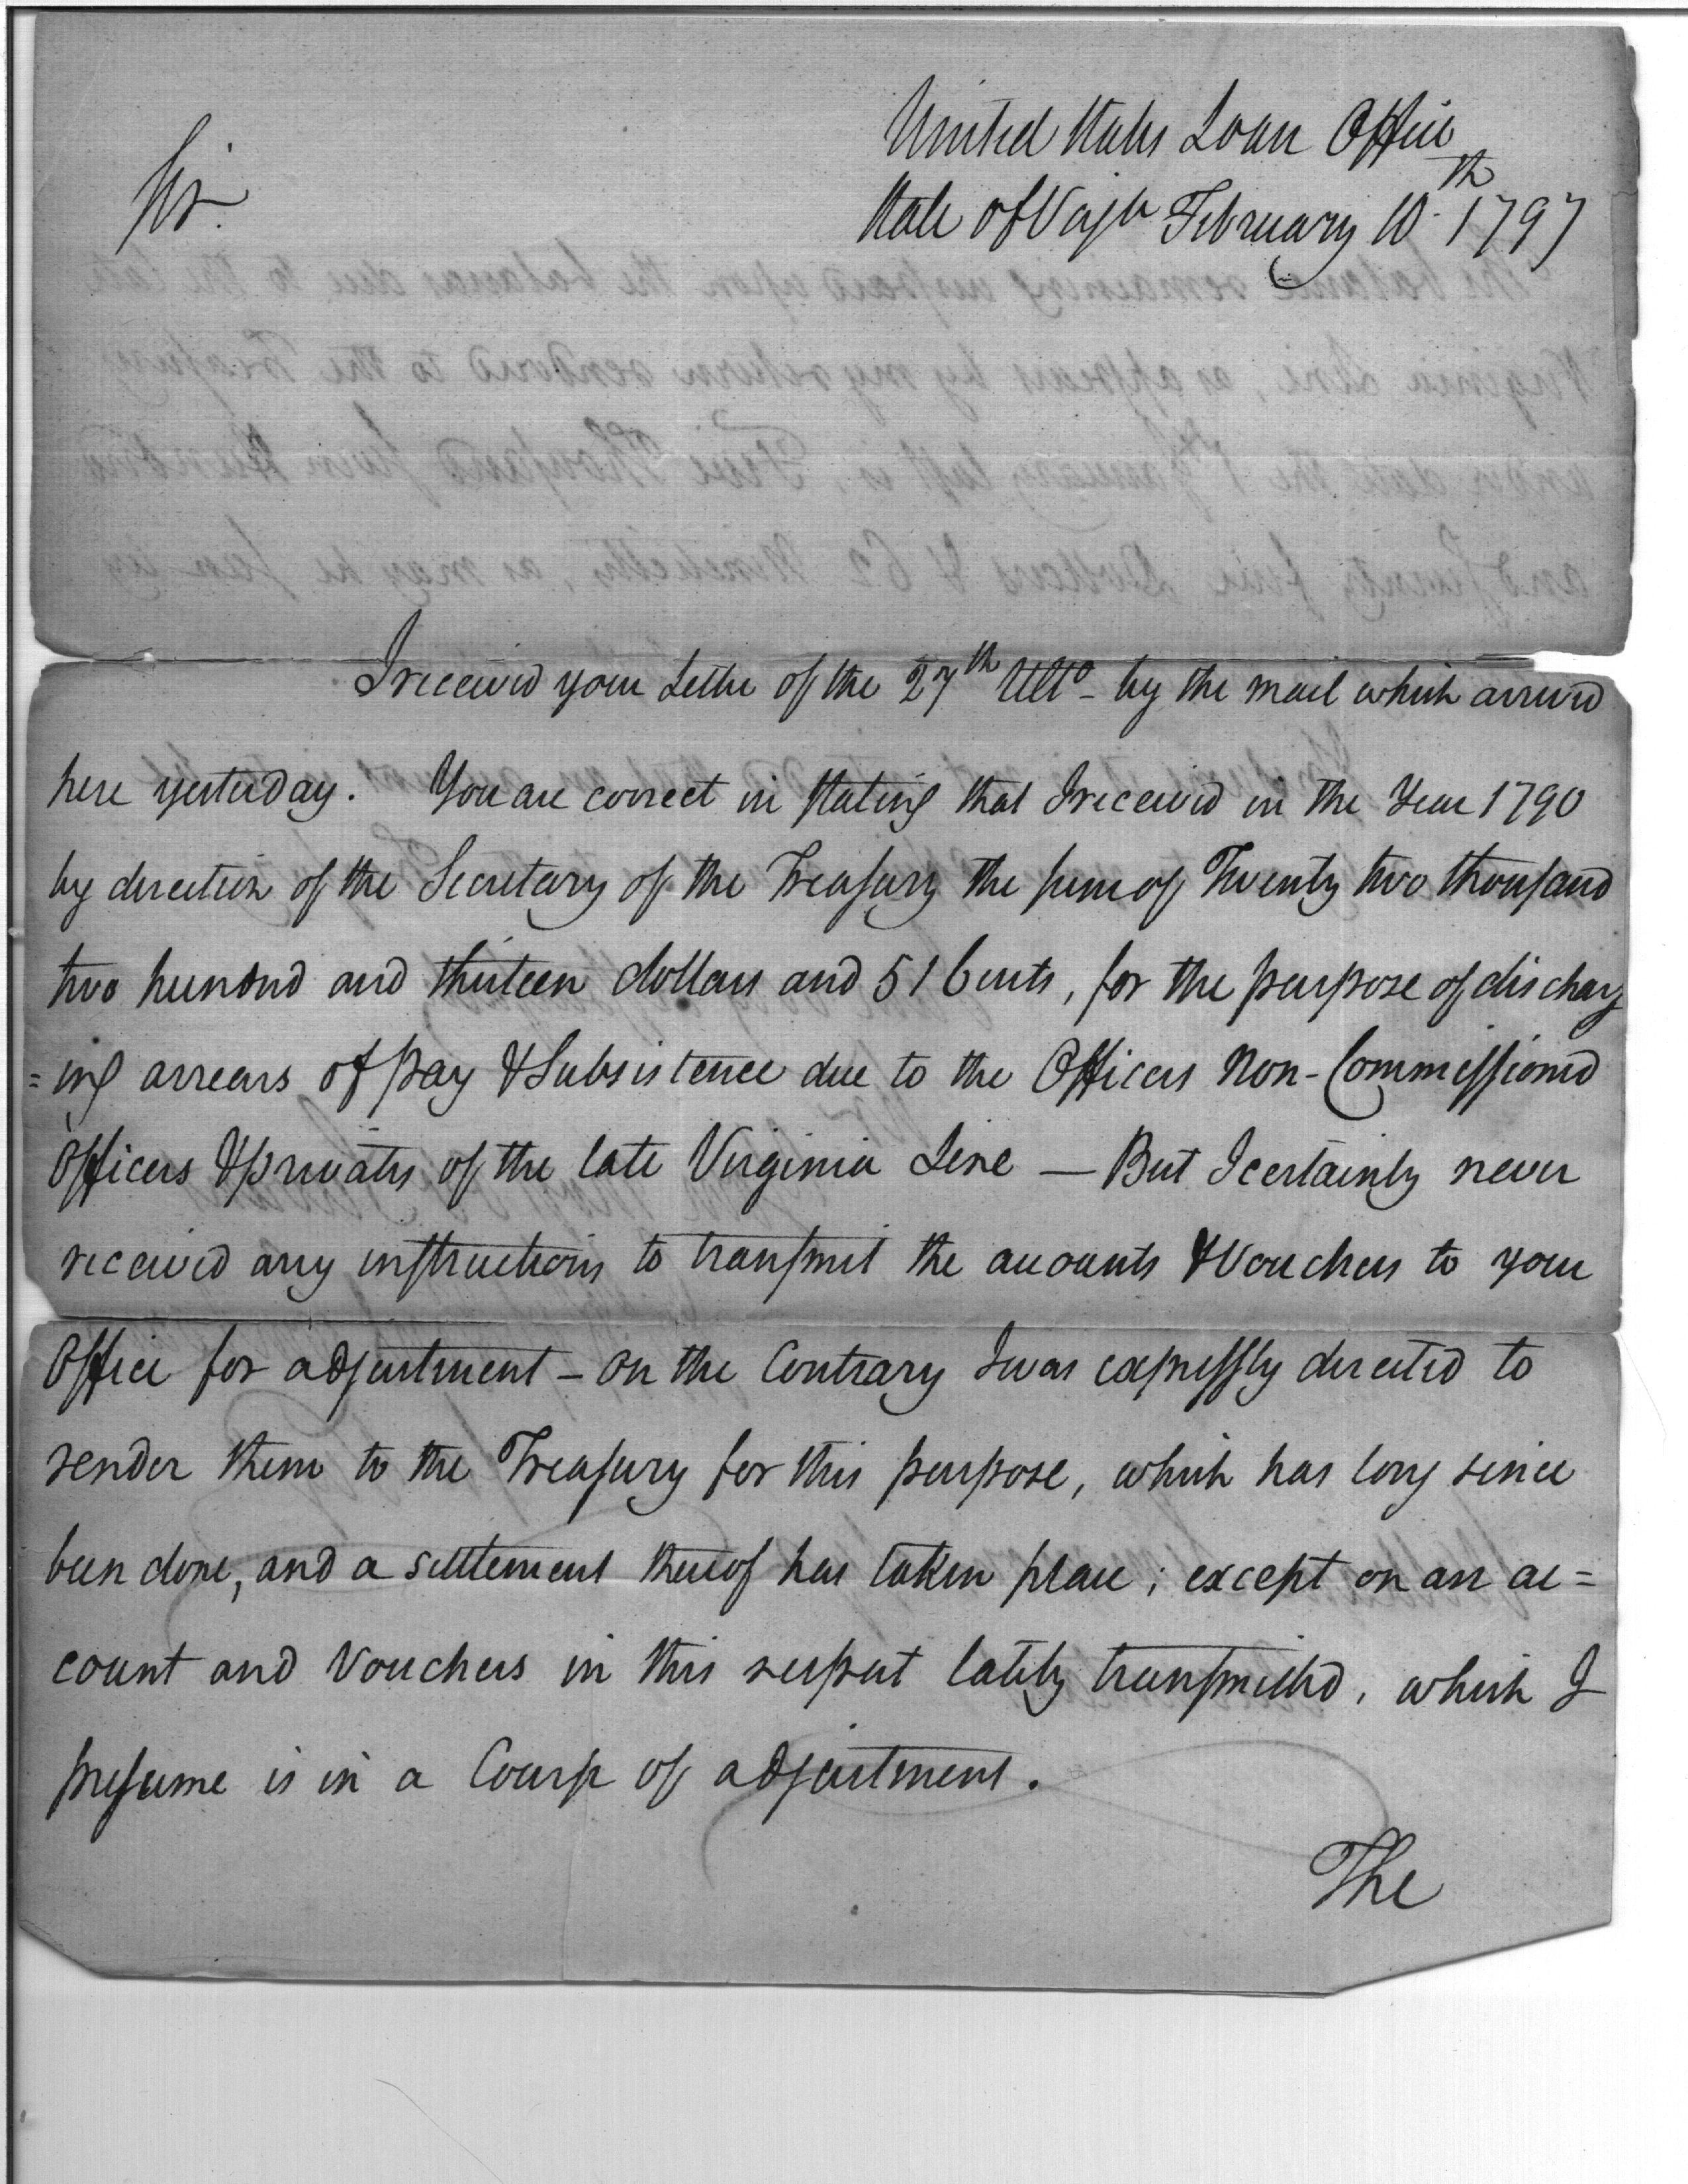 United States Loan Office
State of Virga February 10th 1797
Sir.
I received your Letter of the 27th Ulto - by the mail which arrived
here yesterday. You are correct in stating that I received in the Year 1790
by direction of the Secretary of the Treasury the sum of Twenty two thousand
two hundred and thirteen dollars and 51 Cents, for the purpose of discharg
=ing arrears of pay & Subsistence due to the Officers Non-Commissioned
Officers & privates of the late Virginia Line — But I certainly never
received any instructions to transmit the accounts & Vouchers to your
Office for adjustment - on the Contrary I was expressly directed to
render them to the Treasury for this purpose, which has long since
been done, and a settlement thereof has taken place; except on an ac=
count and Vouchers in this respect lately transmitted, which I
presume is in a Course of adjustment.
The